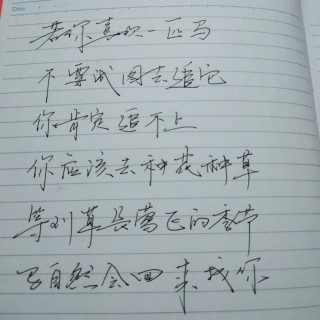 Date
若你喜欢一匹马
不要试图去追它
你肯定追不上
你应该去种花种草
等到草长莺飞的季节
马自然会回来找你